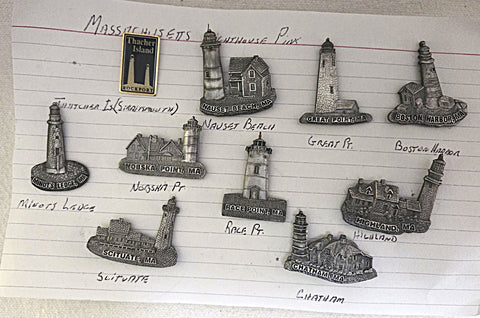 MASSACHUSETTS LIGHTHOUSE PINS
Thacher
Island
THATCHER IS (STRAITSMOUTH)
NAUSET BEACH, MA
NAUSET BEACH
GREAT POINT, MA
GREAT PT.
BOSTON HARBOR
BOSTON HARBOR
MINOTS LEDGE
MINOTS LEDGE
NOBSKA POINT, MA
NOBSKA PT
RACE POINT, MA
RACE PT.
HIGHLAND, MA
HIGHLAND
SCITUATE, MA
SCITUATE
CHATHAM, MA
CHATHAM